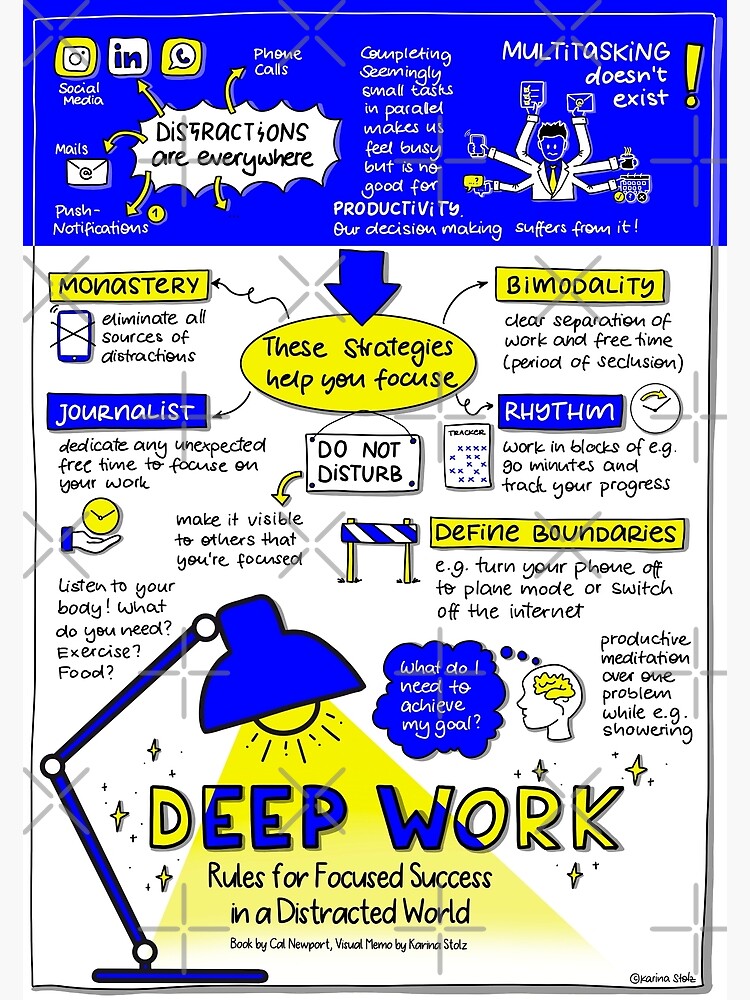 Social
Media
Phone
Calls
DISTRACTIONS
are everywhere
Mails
@
Push-
Notifications
1
Completing
Seemingly
small tasks
in parallel
makes us
feel busy
but is no
good for
PRODUCTIVITY.
Our decision making suffers from it!
MULTITASKING
doesn't
exist
!
...?
These Strategies
help you focuse
MONASTERY
eliminate all
sources of
distractions
BIMODALITY
clear separation of
work and free time
(period of seclusion)
JOURNALIST
dedicate any unexpected
free time to focuse on
your work
RHYTHM
TRACKER
work in blocks of e.g.
90 minutes and
track your progress
DO NOT
DISTURB
make it visible
to others that
you're focused
DEFINE BOUNDARIES
e.g. turn your phone off
to plane mode or switch
off the internet
Listen to your
body! What
do you need?
Exercise?
Food?
What do I
need to
achieve
my goal?
productive
meditation
over one
problem
while e.g.
showering
DEEP WORK
Rules for Focused Success
in a Distracted World
Book by Cal Newport, Visual Memo by Karina Stolz
©Karina Stolz